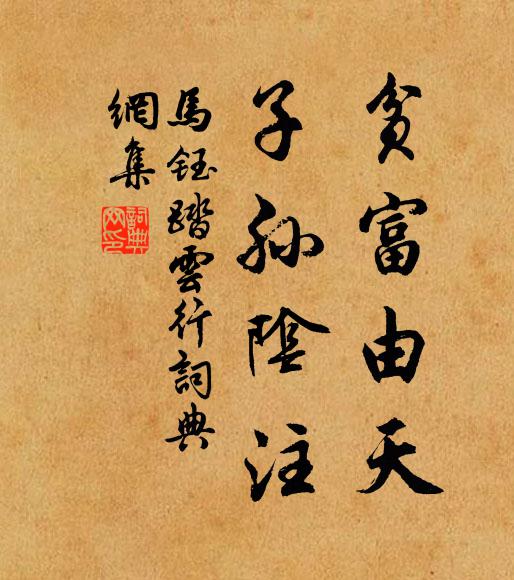 貧富由天
子孫陰注
馬鈺踏雲行詞典
網集
詞典
网印